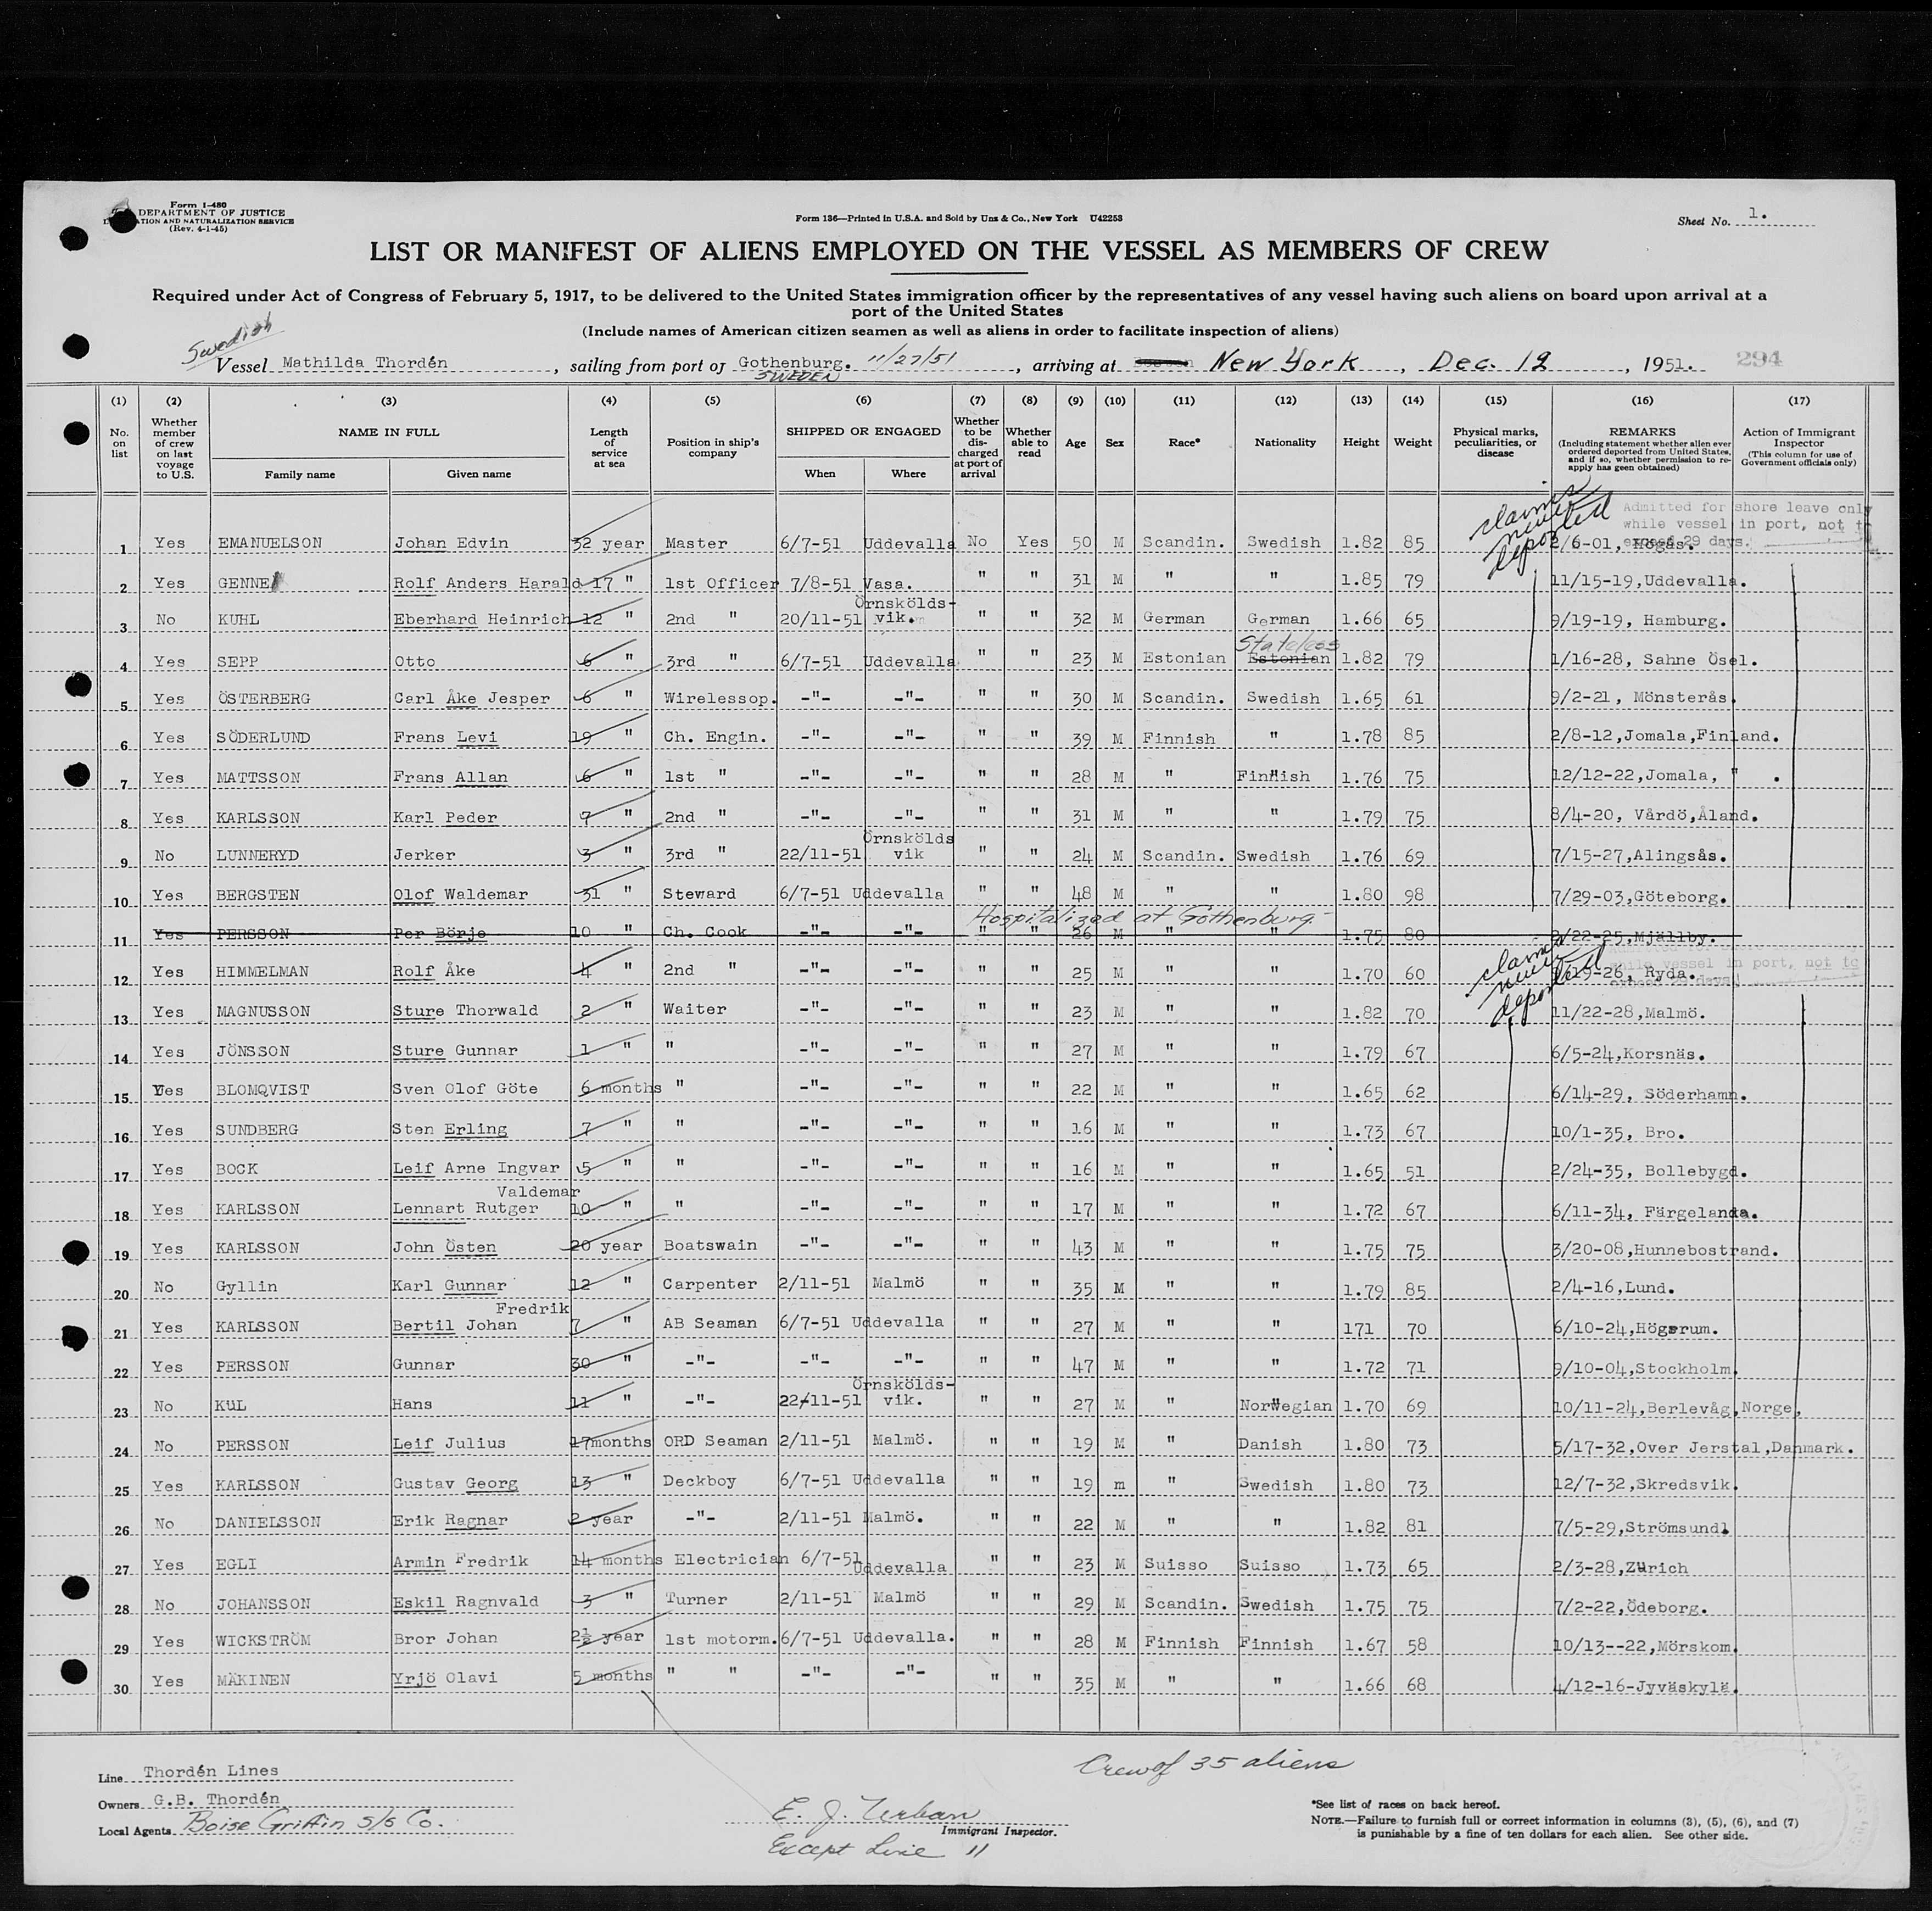 Form I-480
DEPARTMENT OF JUSTICE
TION AND NATURALIZATION SERVICE
(Rev. 4-1-45)
Form 136—Printed in U.S.A. and Sold by Unz & Co., New York U42253
Sheet No. 1.
LIST OR MANIFEST OF ALIENS EMPLOYED ON THE VESSEL AS MEMBERS OF CREW
Required under Act of Congress of February 5, 1917, to be delivered to the United States immigration officer by the representatives of any vessel having such aliens on board upon arrival at a
port of the United States
(Include names of American citizen seamen as well as aliens in order to facilitate inspection of aliens)
Swedish
Vessel Mathilda Thordén, sailing from port of Gothenburg. 11/27/51, arriving at New York, Dec. 12, 1951. 294
SWEDEN
(1) (2) (3) (4) (5) (6) (7) (8) (9) (10) (11) (12) (13) (14) (15) (16) (17)
No. on list
Whether member of crew on last voyage to U.S.
NAME IN FULL
Family name Given name
Length of service at sea
Position in ship's company
SHIPPED OR ENGAGED
When Where
Whether to be discharged at port of arrival
Whether able to read
Age
Sex
Race*
Nationality
Height
Weight
Physical marks, peculiarities, or disease
REMARKS
(Including statement whether alien ever ordered deported from United States, and if so, whether permission to re-apply has geen obtained)
Action of Immigrant Inspector
(This column for use of Government officials only)
claims never deported
Admitted for shore leave only
while vessel in port, not to
exceed 29 days.
1 Yes EMANUELSON Johan Edvin 32 year Master 6/7-51 Uddevalla No Yes 50 M Scandin. Swedish 1.82 85 2/6-01, Högås.
2 Yes GENNE Rolf Anders Harald 17 " 1st Officer 7/8-51 Vasa. " " 31 M " " 1.85 79 11/15-19,Uddevalla.
3 No KUHL Eberhard Heinrich 12 " 2nd " 20/11-51 Örnskölds-vik. " " 32 M German German 1.66 65 9/19-19, Hamburg.
4 Yes SEPP Otto 6 " 3rd " 6/7-51 Uddevalla " " 23 M Estonian Estonian Stateless 1.82 79 1/16-28, Sahne Ösel.
5 Yes ÖSTERBERG Carl Åke Jesper 6 " Wirelessop. -"- -"- " " 30 M Scandin. Swedish 1.65 61 9/2-21, Mönsterås.
6 Yes SÖDERLUND Frans Levi 19 " Ch. Engin. -"- -"- " " 39 M Finnish " 1.78 85 2/8-12,Jomala,Finland.
7 Yes MATTSSON Frans Allan 6 " 1st " -"- -"- " " 28 M " Finnish 1.76 75 12/12-22,Jomala, " .
8 Yes KARLSSON Karl Peder 7 " 2nd " -"- -"- " " 31 M " " 1.79 75 8/4-20, Vårdö,Åland.
9 No LUNNERYD Jerker 3 " 3rd " 22/11-51 Örnskölds vik " " 24 M Scandin. Swedish 1.76 69 7/15-27,Alingsås.
10 Yes BERGSTEN Olof Waldemar 31 " Steward 6/7-51 Uddevalla " " 48 M " " 1.80 98 7/29-03,Göteborg.
Hospitalized at Gothenburg-
11 Yes PERSSON Per Börje 10 " Ch. Cook -"- -"- " " 26 M " " 1.75 80 /22-25,Mjällby.
claims never deported
while vessel in port, not to
exceed 29 days.
12 Yes HIMMELMAN Rolf Åke 4 " 2nd " -"- -"- " " 25 M " " 1.70 60 /19-26, Ryda.
13 Yes MAGNUSSON Sture Thorwald 2 " Waiter -"- -"- " " 23 M " " 1.82 70 11/22-28,Malmö.
14 Yes JÖNSSON Sture Gunnar 1 " " -"- -"- " " 27 M " " 1.79 67 6/5-24,Korsnäs.
15 Yes BLOMQVIST Sven Olof Göte 6 months " -"- -"- " " 22 M " " 1.65 62 6/14-29, Söderhamn.
16 Yes SUNDBERG Sten Erling 7 " " -"- -"- " " 16 M " " 1.73 67 10/1-35, Bro.
17 Yes BOCK Leif Arne Ingvar 5 " " -"- -"- " " 16 M " " 1.65 51 2/24-35, Bollebygd.
Valdemar
18 Yes KARLSSON Lennart Rutger 10 " " -"- -"- " " 17 M " " 1.72 67 6/11-34, Färgelanda.
19 Yes KARLSSON John Östen 20 year Boatswain -"- -"- " " 43 M " " 1.75 75 3/20-08,Hunnebostrand.
20 No Gyllin Karl Gunnar 12 " Carpenter 2/11-51 Malmö " " 35 M " " 1.79 85 2/4-16,Lund.
Fredrik
21 Yes KARLSSON Bertil Johan 7 " AB Seaman 6/7-51 Uddevalla " " 27 M " " 171 70 6/10-24,Högsrum.
22 Yes PERSSON Gunnar 30 " -"- -"- -"- " " 47 M " " 1.72 71 9/10-04,Stockholm.
23 No KUL Hans 11 " -"- 22/11-51 Örnskölds-vik. " " 27 M " Norwegian 1.70 69 10/11-24,Berlevåg,Norge,
24 No PERSSON Leif Julius 17months ORD Seaman 2/11-51 Malmö. " " 19 M " Danish 1.80 73 5/17-32,Over Jerstal,Danmark.
25 Yes KARLSSON Gustav Georg 13 " Deckboy 6/7-51 Uddevalla " " 19 m " Swedish 1.80 73 12/7-32,Skredsvik.
26 No DANIELSSON Erik Ragnar 2 year -"- 2/11-51 Malmö. " " 22 M " " 1.82 81 7/5-29,Strömsund.
27 Yes EGLI Armin Fredrik 14 months Electrician 6/7-51 Uddevalla " " 23 M Suisso Suisso 1.73 65 2/3-28,Zürich
28 No JOHANSSON Eskil Ragnvald 3 " Turner 2/11-51 Malmö " " 29 M Scandin. Swedish 1.75 75 7/2-22,Ödeborg.
29 Yes WICKSTRÖM Bror Johan 2½ year 1st motorm. 6/7-51 Uddevalla. " " 28 M Finnish Finnish 1.67 58 10/13--22,Mörskom.
30 Yes MÄKINEN Yrjö Olavi 5 months " " -"- -"- " " 35 M " " 1.66 68 4/12-16-Jyväskylä.
Crew of 35 aliens
Line Thordén Lines
Owners G.B. Thordén
Local Agents Boise Griffin S/S Co.
E. J. Urban
Immigrant Inspector.
Except Line 11
*See list of races on back hereof.
NOTE.—Failure to furnish full or correct information in columns (3), (5), (6), and (7)
is punishable by a fine of ten dollars for each alien. See other side.